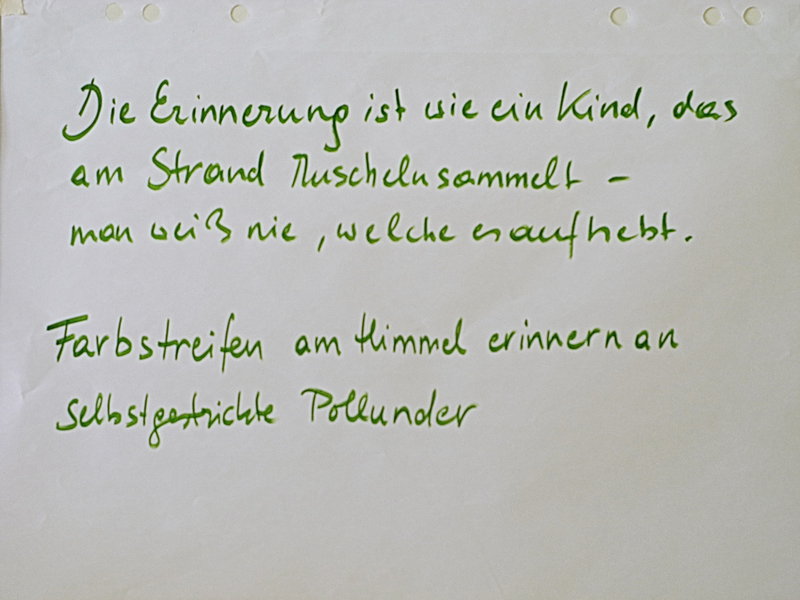 Die Erinnerung ist wie ein Kind, das
am Strand Muscheln sammelt –
man weiß nie, welche es aufhebt.
Farbstreifen am Himmel erinnern an
selbstgestrickte Pollunder